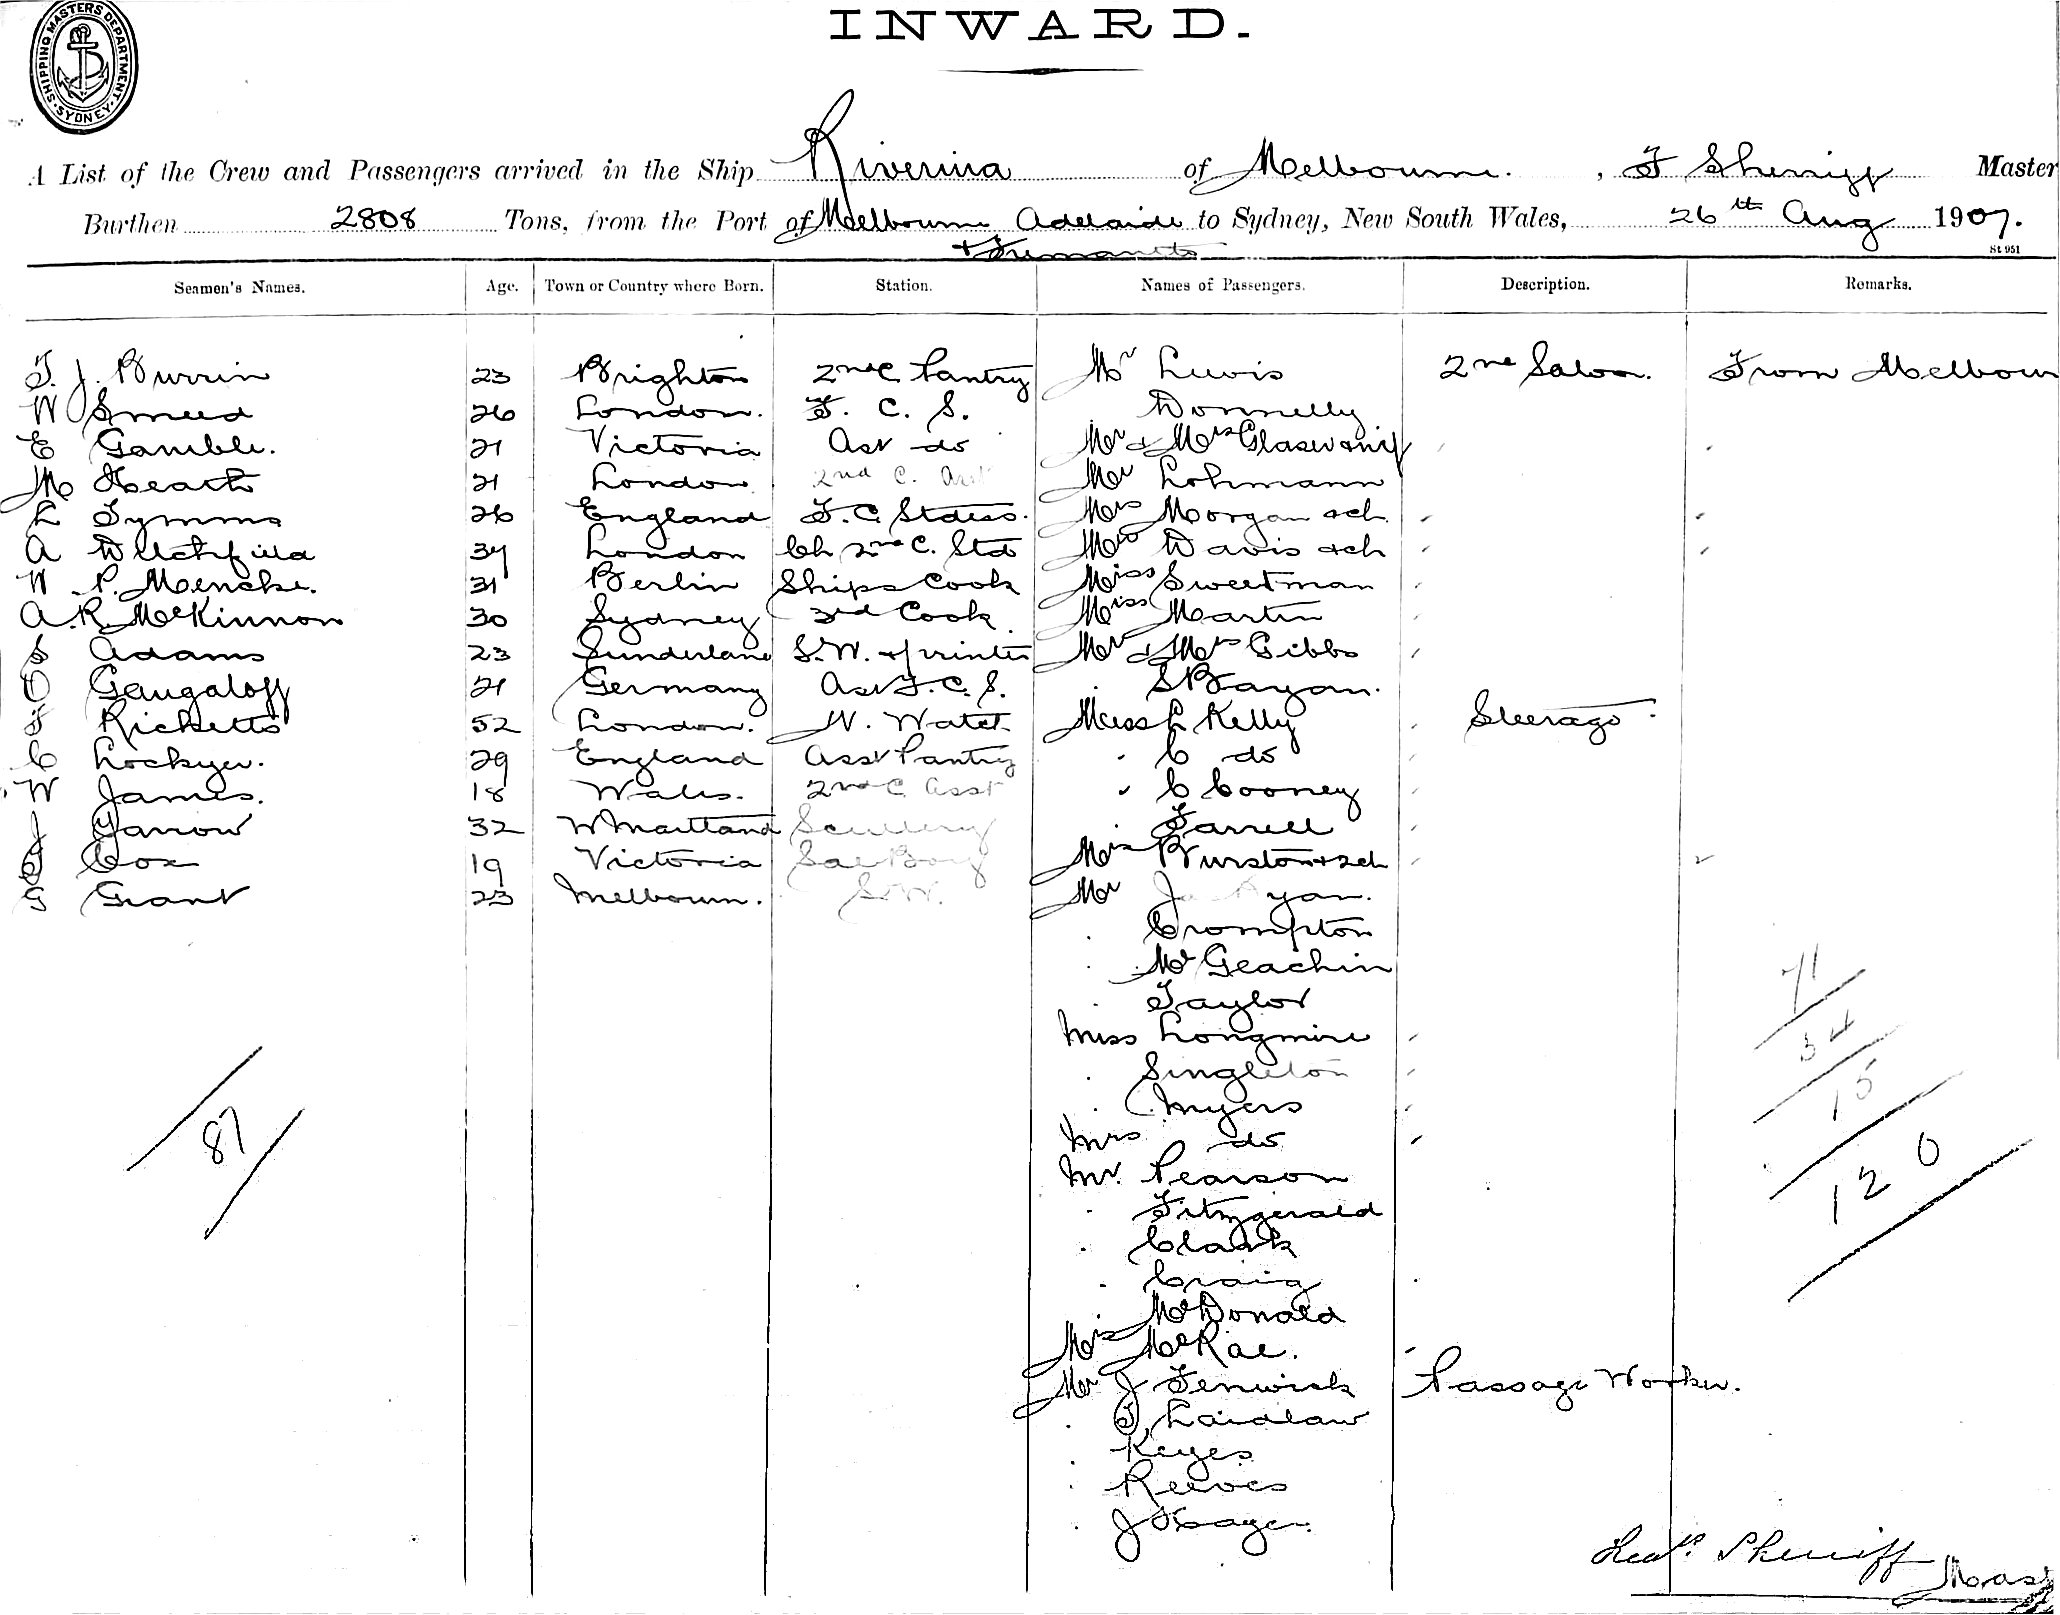 SHIPPING MASTERS DEPARTMENT. SYDNEY.
INWARD.
A List of the Crew and Passengers arrived in the Ship Riverina of Melbourne. , F Sherriff Master
Burthen 2808 Tons, from the Port of Melbourne Adelaide to Sydney, New South Wales, 26th Aug 1907.
+ Fremantle
St 951
Seamen's Names. Age. Town or Country where Born. Station. Names of Passengers. Description. Remarks.
T. J. Burrin 23 Brighton 2nd C Pantry Mr Lewis 2nd Saloon. From Melbourn
W Smeed 26 London. F. C. S. Donnelly
E Gamble. 21 Victoria Ast do Mr & Mrs
M Heath 21 London 2nd C. Ast Mr Lohmann
L Symms 26 England F. C. Stdess. Mrs Morgan & ch
A Ditchfield 34 London Ch 2nd C. Std Mrs Davis & ch
W P. Mencke. 31 Berlin Ships Cook Miss Sweetman
A. R. McKinnon 30 Sydney 3rd Cook Miss Martin
S Adams 23 Sunderland S. W. & printer Mr & Mrs Gibbs
O Gaugaloff 21 Germany Ast F. C. S. S Bayan.
F Ricketts 52 London. N. Watch Miss L Kelly Steerage
C Lockyer. 29 England Asst Pantry C do
W James. 18 Wales. 2nd C Asst C Cooney
J Yarrow 32 W Maitland Scullery Farrell
J Cox 19 Victoria Sal Boy Mrs Burston & 2 ch
G Grant 23 Melbourn. S. W. Mr J Ryan.
Crompton
McGeachin
Taylor
Miss Longmire
Singleton
Myers
Mrs do
Mr. Pearson
Fitzgerald
Clark
Craig
McDonald
Mrs McRae.
Mr J Fenwick Passage Worker.
T Laidlaw
Keyes
Reeves
J Hayer.
87
71
34
15
120
Sherriff Mas